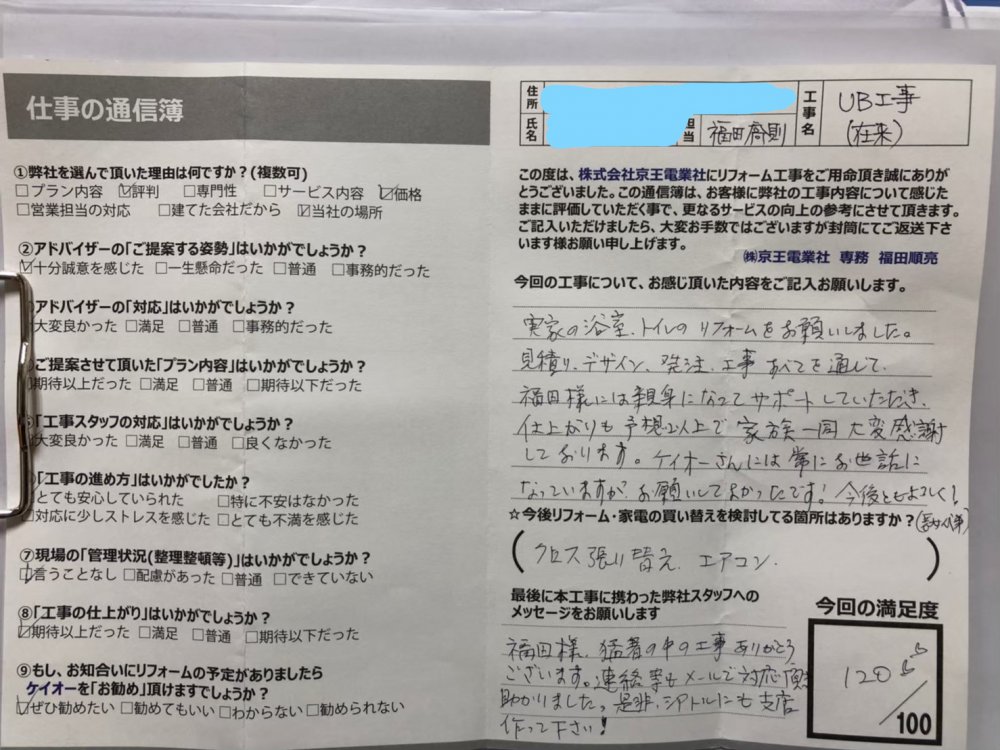 仕事の通信簿
①弊社を選んで頂いた理由は何ですか？(複数可)
□プラン内容 ☑評判 □専門性 □サービス内容 ☑価格
□営業担当の対応 □建てた会社だから ☑当社の場所
②アドバイザーの「ご提案する姿勢」はいかがでしょうか？
☑十分誠意を感じた □一生懸命だった □普通 □事務的だった
アドバイザーの「対応」はいかがでしょうか？
大変良かった □満足 □普通 □事務的だった
ご提案させて頂いた「プラン内容」はいかがでしょうか？
期待以上だった □満足 □普通 □期待以下だった
「工事スタッフの対応」はいかがでしょうか？
大変良かった □満足 □普通 □良くなかった
「工事の進め方」はいかがでしたか？
とても安心していられた □特に不安はなかった
□対応に少しストレスを感じた □とても不満を感じた
⑦現場の「管理状況(整理整頓等)」はいかがでしょうか？
☑言うことなし □配慮があった □普通 □できていない
⑧「工事の仕上がり」はいかがでしょうか？
☑期待以上だった □満足 □普通 □期待以下だった
⑨もし、お知合いにリフォームの予定がありましたら
ケイオーを「お勧め」頂けますでしょうか？
☑ぜひ勧めたい □勧めてもいい □わからない □勧められない
住所
氏名
担当
福田
則
工事名
UB工事
(在来)
この度は、株式会社京王電業社にリフォーム工事をご用命頂き誠にありが
とうございました。この通信簿は、お客様に弊社の工事内容について感じた
ままに評価していただく事で、更なるサービスの向上の参考にさせて頂きます。
ご記入いただけましたら、大変お手数ではございますが封筒にてご返送下さ
います様お願い申し上げます。
㈱京王電業社 専務 福田順亮
今回の工事について、お感じ頂いた内容をご記入お願いします。
実家の浴室、トイレのリフォームをお願いしました。
見積り、デザイン、発注、工事 すべてを通して、
福田様には親身になってサポートしていただき、
仕上がりも予想以上で家族一同大変感謝
しております。ケイオーさんには常にお世話に
なっていますが、お願いしてよかったです！今後ともよろしく！
☆今後リフォーム・家電の買い替えを検討してる箇所はありますか？
(クロス張り替え、エアコン、)
最後に本工事に携わった弊社スタッフへの
メッセージをお願いします
福田様、猛暑の中の工事ありがとう
ございます。連絡等もメールで対応頂き
助かりました。是非、シアトルにも支店
作って下さい！
今回の満足度
120
/100